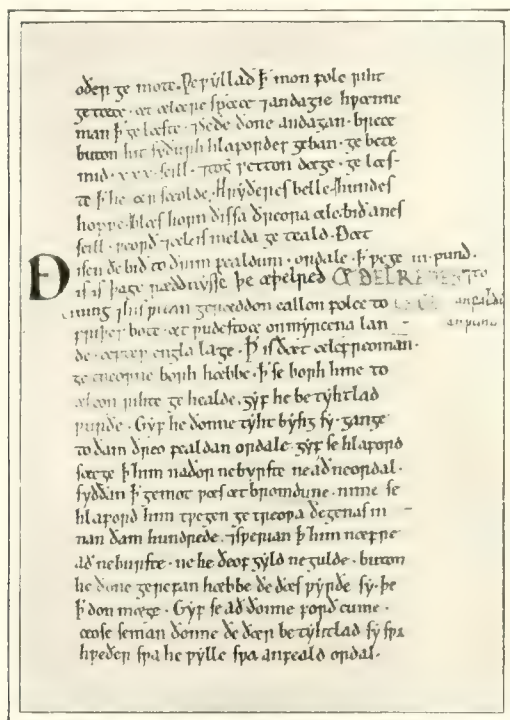 oðer gemote. Ƿe ƿyllað ꝥ mon folc riht
getæce · æt ælcere spæce ⁊ andagie hƿænne
man ꝥ gelæste · ⁊ se ðe ðone andagan · brece
buton hit sy ðurh hlafordes geban · gebete
mid · xxx · scill · ⁊ to setton dæge · gelæs-
te ꝥ he ær scolde. Hryðeres belle · hundes
hoppe · blæs horn ðissa ðreora ælc · bið anes
scill · ⁊ is melda geteald · Ðæt
isen ðe bið to ðrim fealdum · ordale · ꝥ ƿege · iii · pund. to
Ðis is þa gerædnysse þe æþelred anfealdū
cining ⁊ his ƿitan geræddon eallon folce to an pund
friþes bote · æt ƿudestoce on myrcena lan
de · æfter engla lage · ꝥ is ðæt ælc freoman·
getreoƿne borh hæbbe · ꝥ se borh hine to
ælcon rihte gehealde · gyf he betyhtlad
ƿurðe · Gyf he ðonne tyht bysig sy · gange
to ðam ðreo fealdan ordale · gyf se hlaford
sæcge ꝥ him naðor ne burste ne að ne ordal ·
syððan ꝥ gemot ƿæs æt bromdune · nime se
hlaford him tƿegen getreoƿa ðegenas in
nan ðam hundrede · ⁊ sƿerian ꝥ him næfre
að ne burste · ne he ðeof gyld ne gulde · buton
he ðone gerefan hæbbe ðe ðæs ƿyrðe sy · þe
ꝥ don mæge · Gyf se að ðonne forð cume ·
ceose se man ðonne ðe ðær betyhtlad sy sƿa
hƿeðer sƿa he ƿylle sƿa anfeald ordal ·